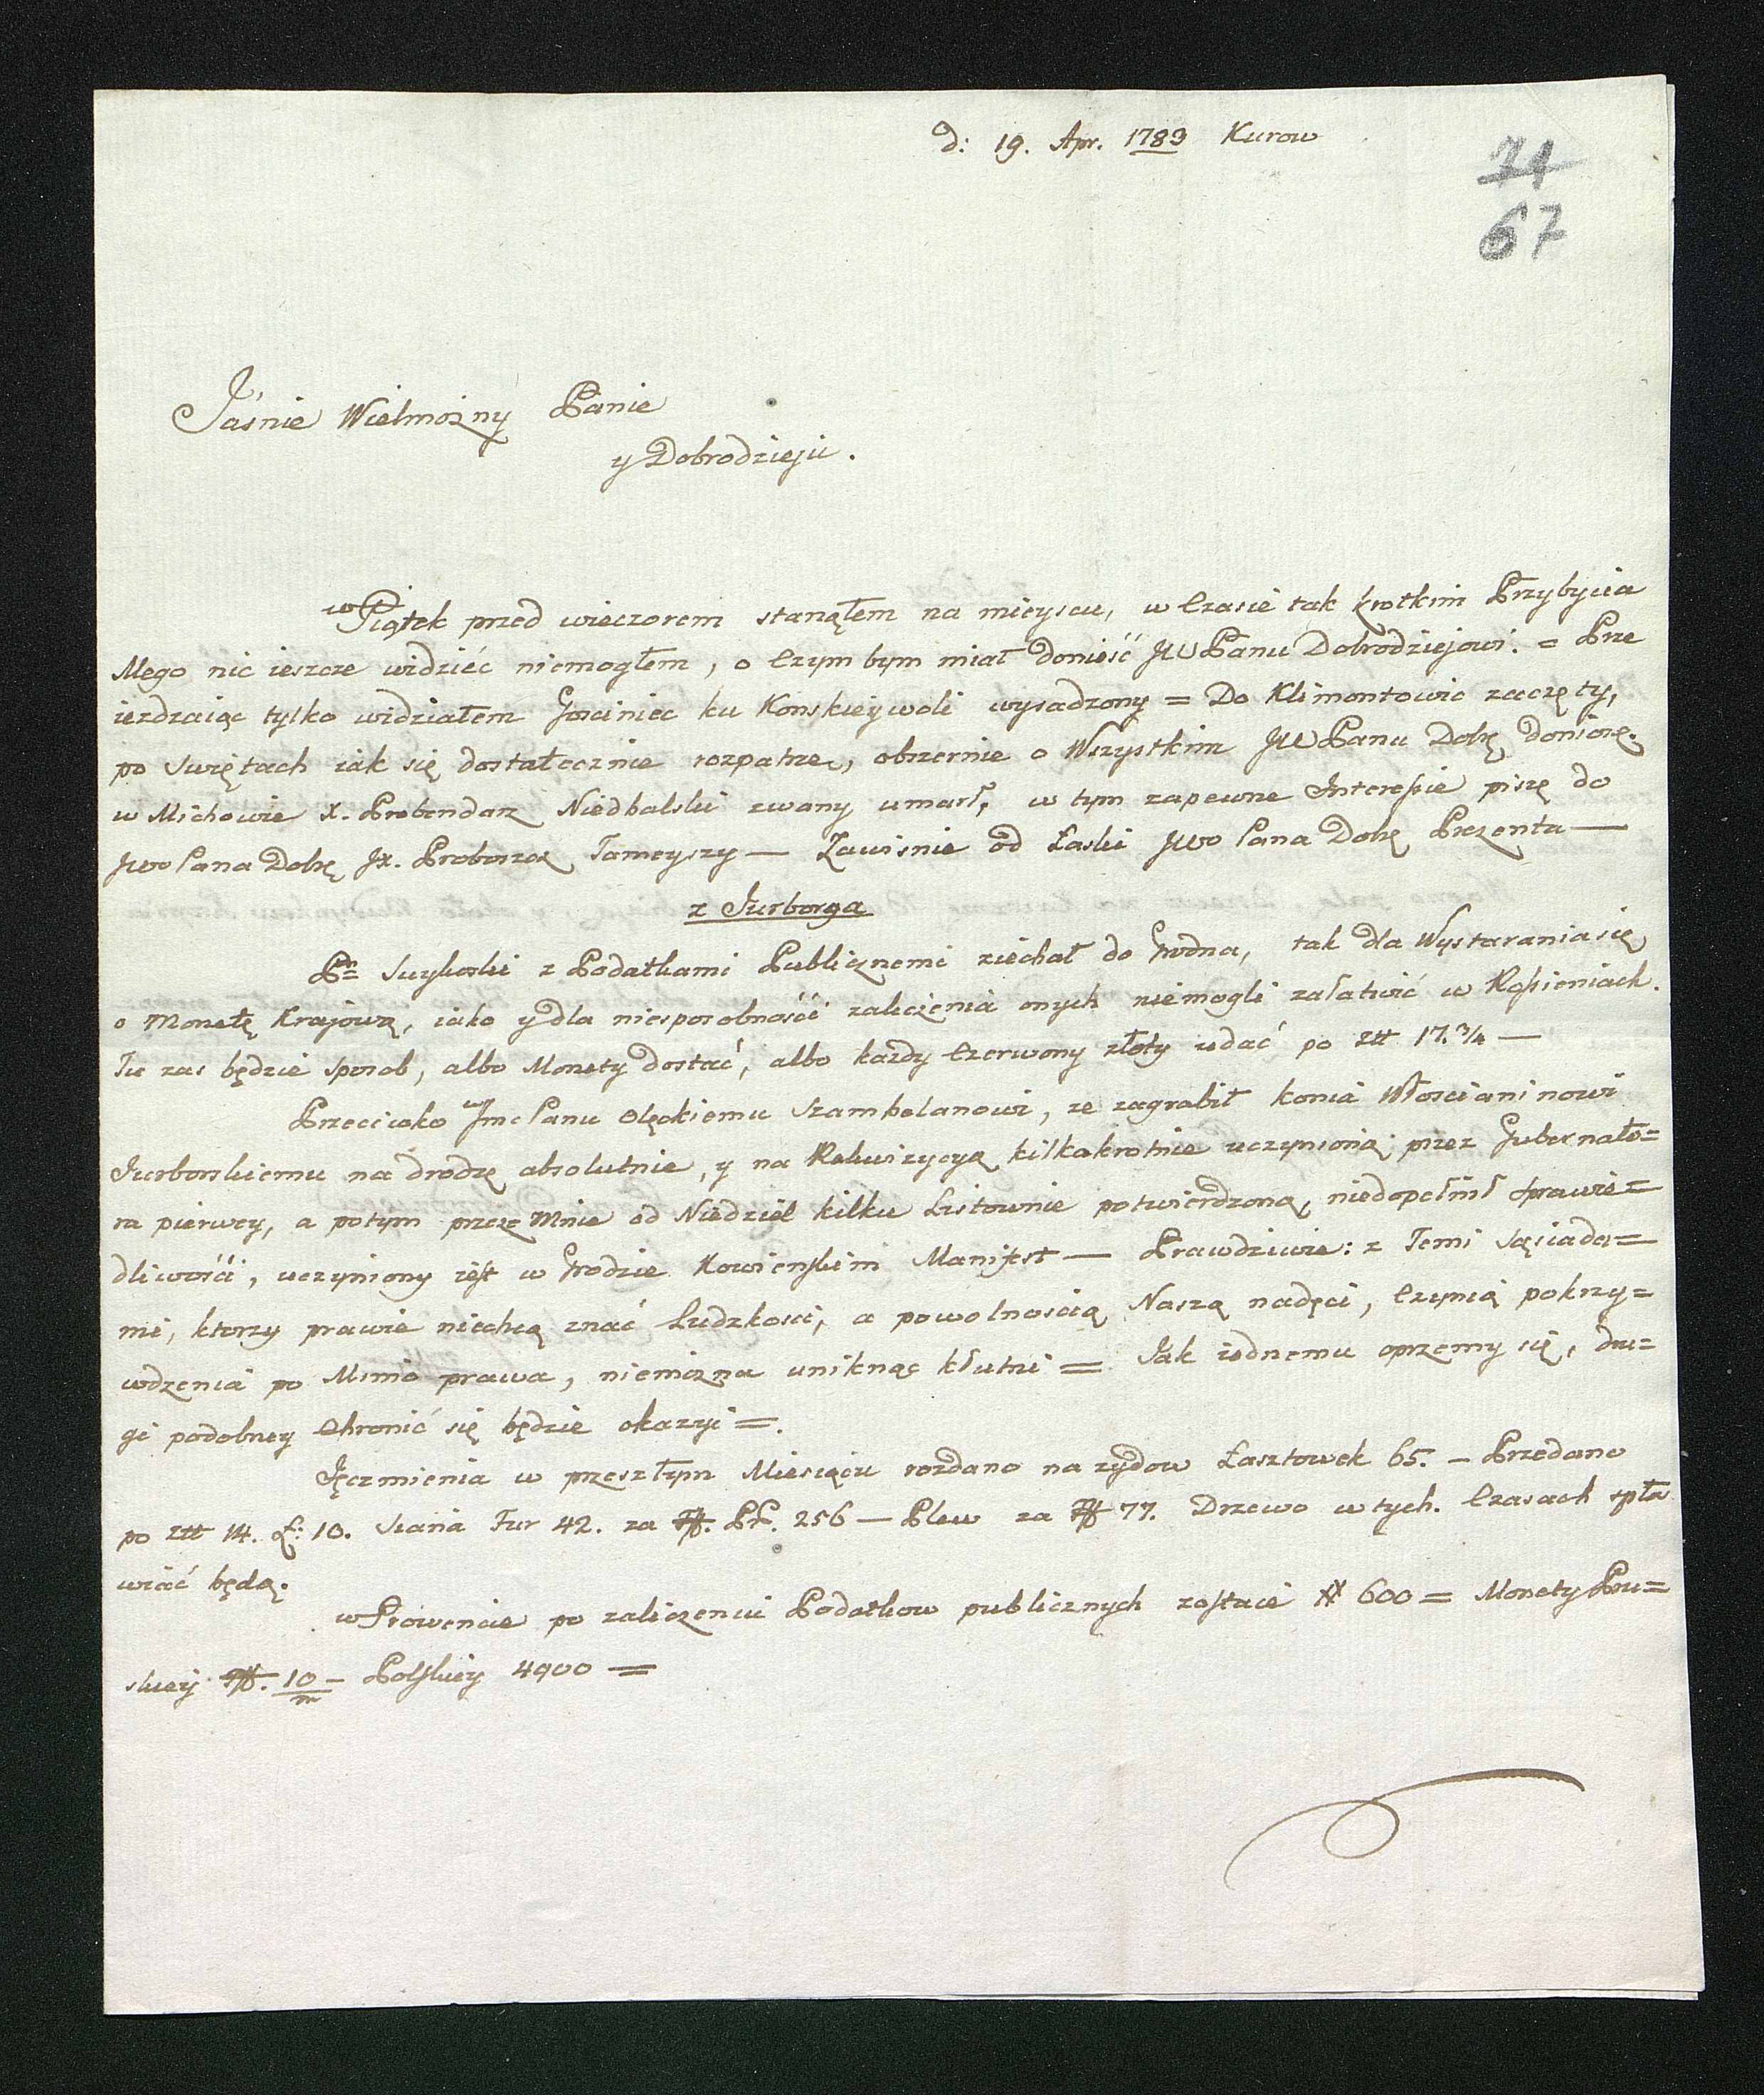 d: 19. Apr. 1783 Kurow
74
67
Jaśnie Wielmożny Panie
y Dobrodzieju.
w Piątek przed wieczorem stanąłem na mieyscu, w Czasie tak krotkim Przybycia
Mego nic ieszcze widzieć niemogłem, o Czym bym miał donieść JWPanu Dobrodziejowi. = Prze
ieżdzaiąc tylko widziałem Gosciniec ku Konskieywoli wysadzony = Do Klimontowic zaczęty,
po Swiętach iak się dostatecznie rozpatrzę, obszernie o Wszystkim JWPanu Dobę doniosę.
w Michowie X. Prebendarz Niedbalski zwany umarł, w tym zapewne Interesie piszę do
JWo Pana Dobę Jx. Proboszcz Tameyszy — Zawisnie od Łaski JWo Pana Dobę Prezenta —
z Jurborga
Pn Suykoski z Podatkami Publicznemi ziechał do Grodna, tak dla Wystarania się
o Monetę Krajową, iako y dla niesposobnośći zaliczenia onych niemogli załatwić w Rosieniach.
Tu zas będzie sposob, albo Monety dostać, albo każdy Czerwony złoty udać po zł 17.3/4 —
Przeciwko Jmc Panu Olęckiemu Szambelanowi, ze zagrabił konia Włoscianinowi
Jurborskiemu na drodze absolutnie, y na Rekwizycyą kilkakrotnie uczynioną przez Gubernato=
ra pierwey, a potym przeze Mnie od Niedziel kilku Listownie potwierdzoną, niedopełnił Sprawie=
dliwośći, uczyniony iest w Grodzie Kowienskim Manifest — Prawdziwie: z Temi Sąsiada=
mi, ktorzy prawie niechcą znać Ludzkosci, a powolnoscią Naszą nadęci, Czynią pokrzy=
wdzenia po Mimo prawa, niemożna uniknąc kłutni = Jak iednemu oprzemy się, dru=
gi podobney Chronić się będzie okazyi =.
Jęczmienia w przeszłym Miesiącu rozdano na zydow Łasztowek 65. — Przedano
po zł 14. g: 10. Siana Fur 42. za Pr. 256 — Plew za 77. Drzewo w tych. Czasach spła
wiać będą.
w Prowencie po zaliczeniu Podatkow publicznych zostaie # 600 = Monety Pru=
skiey 10/m — Polskiey 4900 =